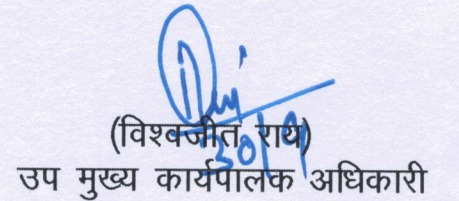 30/9
(विश्वजीत राय)
उप मुख्य कार्यपालक अधिकारी